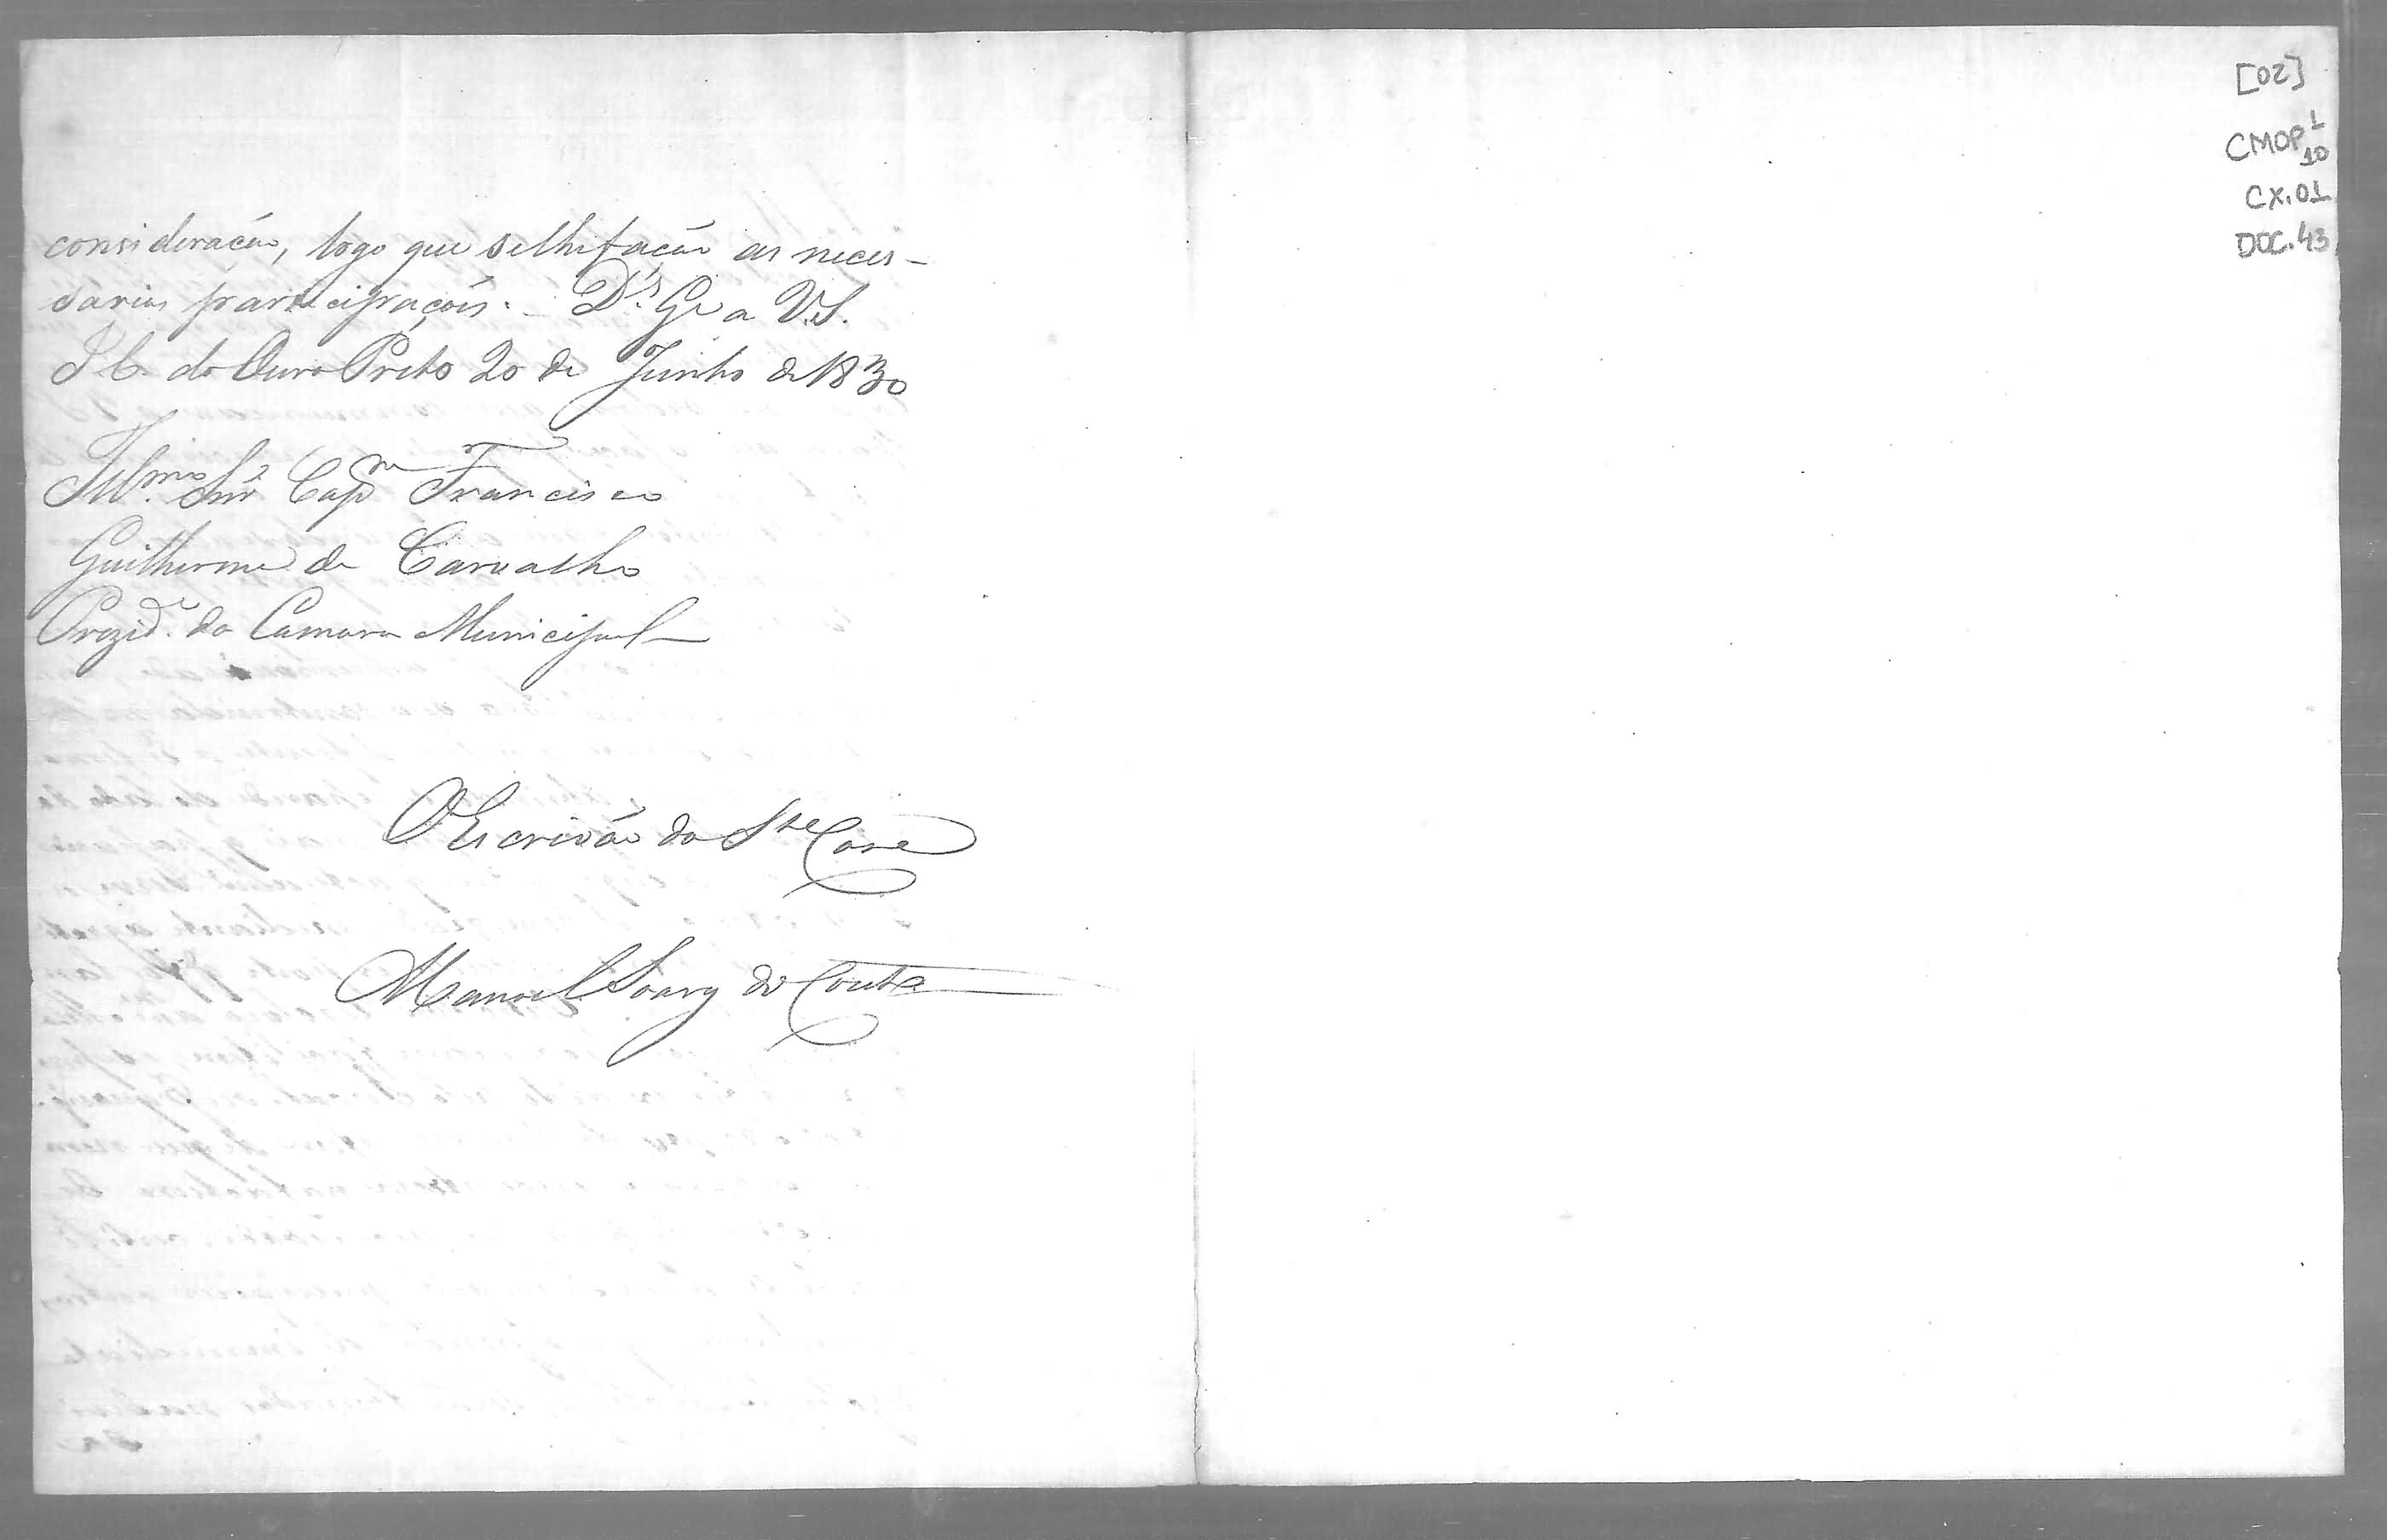 consideração, logo que selhifação as neces-
sarias participaçoĩs. D.s Ge a V.S.
I. C. do Ouro Preto 20 de Junho de 1830
Illmo. Snr. Capm. Francisco
Guilherme de Carvalho
Prezide. da Camara Municipal
O Escrivão da Sta Caza
Manoel Soares do Couto
[02]
CMOP 1
10
CX.01
DOC.43